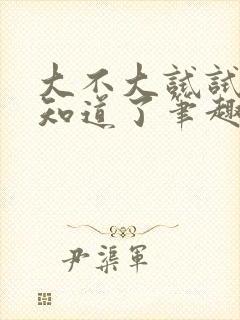 大不大试试
知道了笔趣
尹渠军